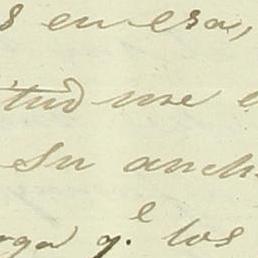 s en esa,
itud me e
Su anch
arga y.e los